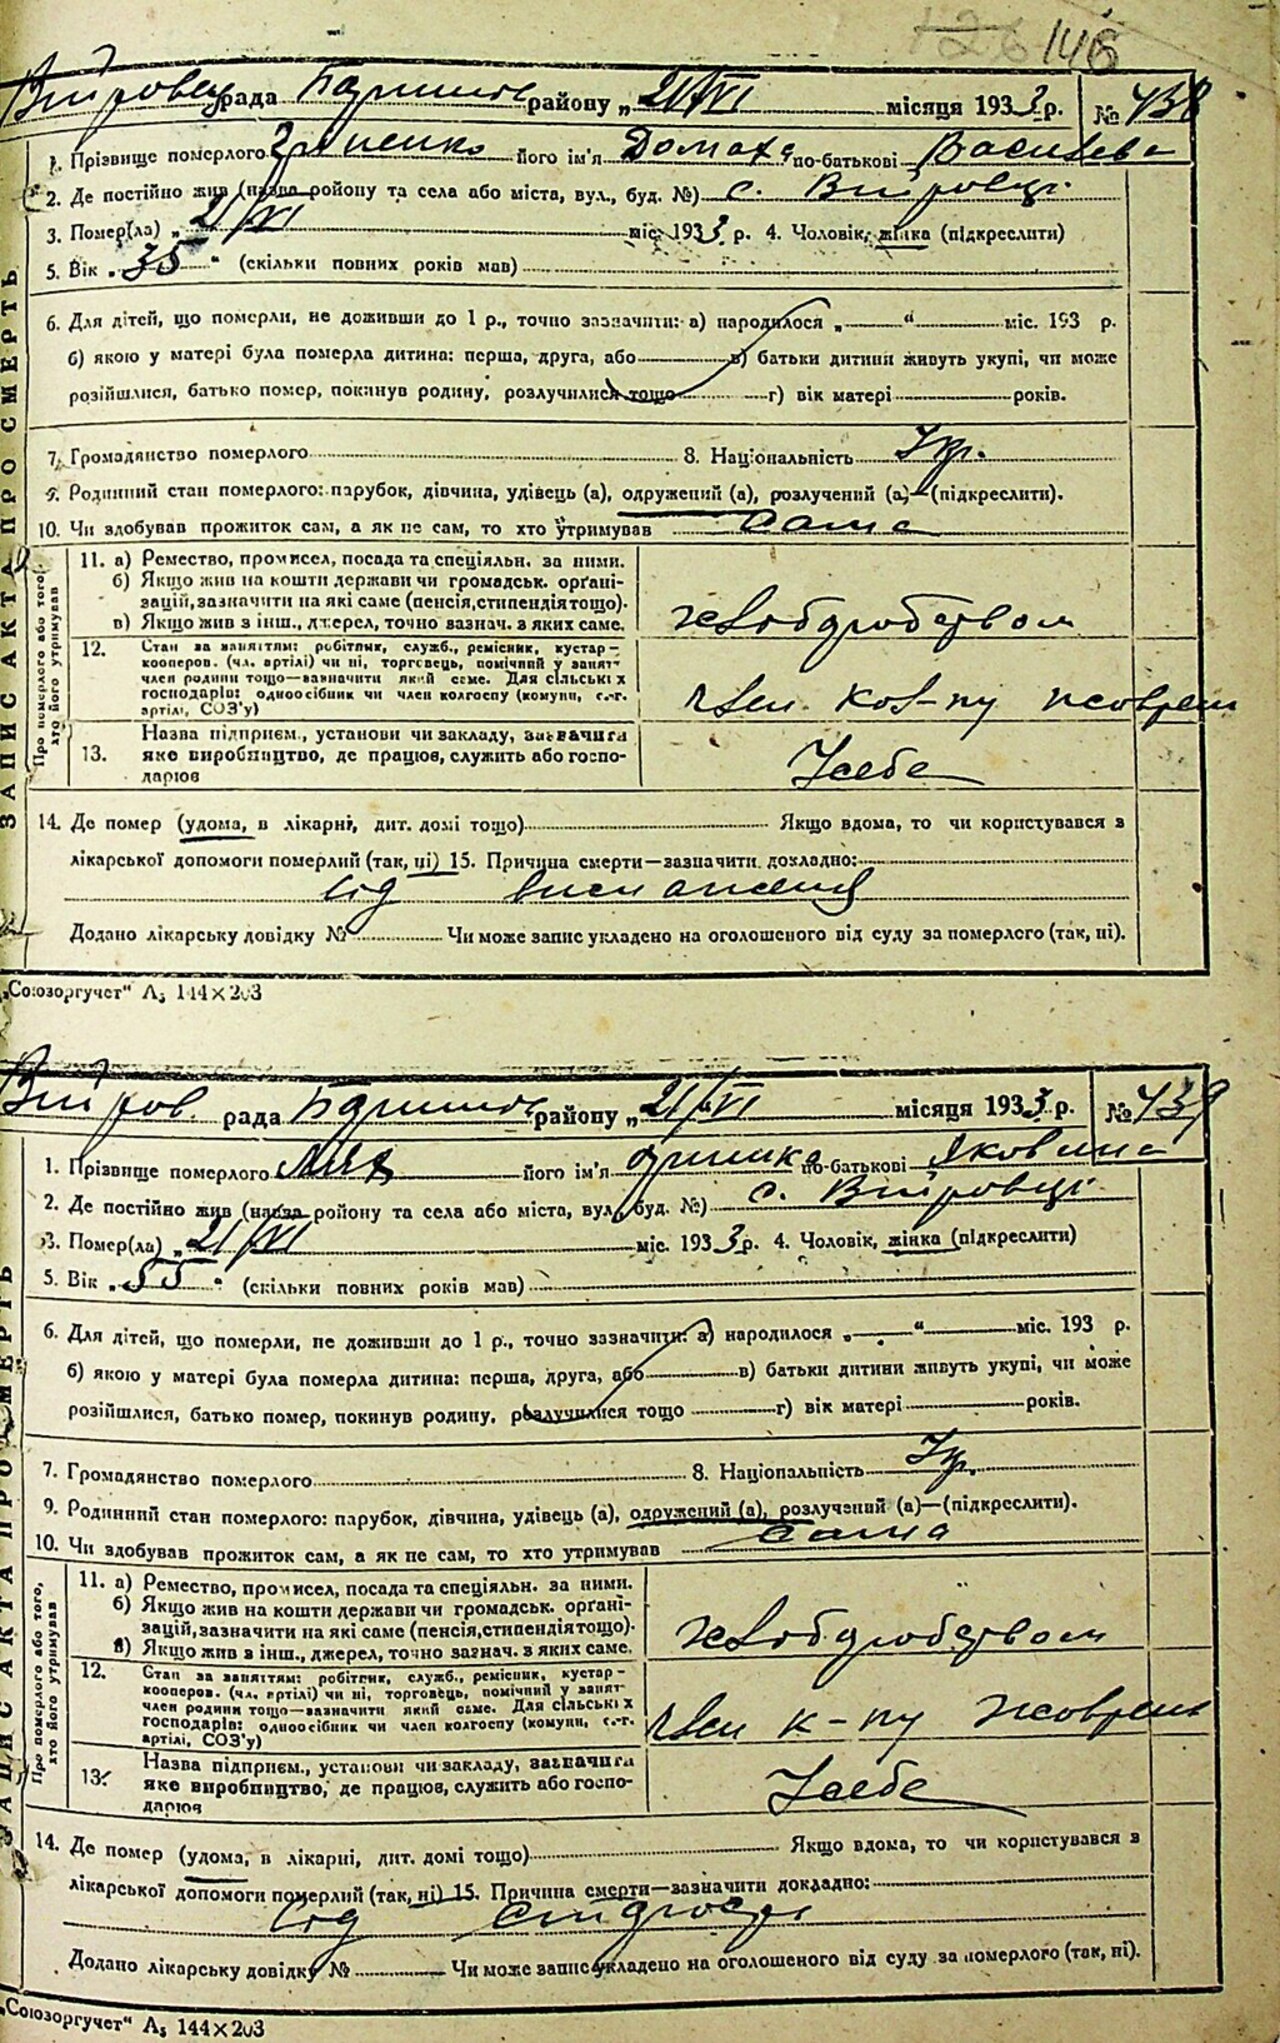 126 146
рада Баришів району „21/VI місяця 1933 р. № 438
1. Прізвище померлого його ім'я Домаха по-батькові Васильева
2. Де постійно жив (назва району та села або міста, вул., буд. №) с. Війтровці
3. Помер(ла) „21/VI міс. 1933 р. 4. Чоловік, жінка (підкреслити)
5. Вік „35" (скільки повних років мав)
6. Для дітей, що померли, не доживши до 1 р., точно зазначити: а) народилося „—" міс. 193 р.
б) якою у матері була померла дитина: перша, друга, або в) батьки дитини живуть укупі, чи може
розійшлися, батько помер, покинув родину, розлучилися тощо г) вік матері років.
7. Громадянство померлого 8. Національність Укр.
9. Родинний стан померлого: парубок, дівчина, удівець (а), одружений (а), розлучений (а)—(підкреслити).
10. Чи здобував прожиток сам, а як не сам, то хто утримував сама
ЗАПИС АКТА ПРО СМЕРТЬ
Про померлого або того, хто його утримував
11. а) Ремество, промисел, посада та спеціяльн. за ними.
б) Якщо жив на кошти держави чи громадськ. орґані-
зацій, зазначити на які саме (пенсія, стипендія тощо).
в) Якщо жив з інш., джерел, точно зазнач. з яких саме.
хліборобством
12. Стан за заняттям: робітник, служб., ремісник, кустар-
кооперов. (чл. артілі) чи ні, торговець, помічний у занят-
член родини тощо—зазначити який саме. Для сільських
господарів: одноосібник чи член колгоспу (комуни, с.-г.
артілі, СОЗ'у)
член кол-пу
13. Назва підприєм., установи чи закладу, зазначита
яке виробництво, де працює, служить або госпо-
дарює
У себе
14. Де помер (удома, в лікарні, дит. домі тощо) Якщо вдома, то чи користувався з
лікарської допомоги померлий (так, ні) 15. Причина смерти—зазначити докладно:
від виснаження
Додано лікарську довідку № Чи може запис укладено на оголошеного від суду за померлого (так, ні).
„Союзоргучет" А5 144×203
рада Баришів району „21/VI місяця 1933 р. № 439
1. Прізвище померлого його ім'я Оришка по-батькові Яковина
2. Де постійно жив (назва району та села або міста, вул., буд. №) с. Війтровці
3. Помер(ла) „21/VI міс. 1933 р. 4. Чоловік, жінка (підкреслити)
5. Вік „55" (скільки повних років мав)
6. Для дітей, що померли, не доживши до 1 р., точно зазначити: а) народилося „—" міс. 193 р.
б) якою у матері була померла дитина: перша, друга, або в) батьки дитини живуть укупі, чи може
розійшлися, батько помер, покинув родину, розлучилися тощо г) вік матері років.
7. Громадянство померлого 8. Національність Укр.
9. Родинний стан померлого: парубок, дівчина, удівець (а), одружений (а), розлучений (а)—(підкреслити).
10. Чи здобував прожиток сам, а як не сам, то хто утримував сама
ЗАПИС АКТА ПРО СМЕРТЬ
Про померлого або того, хто його утримував
11. а) Ремество, промисел, посада та спеціяльн. за ними.
б) Якщо жив на кошти держави чи громадськ. орґані-
зацій, зазначити на які саме (пенсія, стипендія тощо).
в) Якщо жив з інш., джерел, точно зазнач. з яких саме.
хліборобством
12. Стан за заняттям: робітник, служб., ремісник, кустар-
кооперов. (чл. артілі) чи ні, торговець, помічний у занят-
член родини тощо—зазначити який саме. Для сільських
господарів: одноосібник чи член колгоспу (комуни, с.-г.
артілі, СОЗ'у)
член к-пу
13. Назва підприєм., установи чи закладу, зазначита
яке виробництво, де працює, служить або госпо-
дарює
У себе
14. Де помер (удома, в лікарні, дит. домі тощо) Якщо вдома, то чи користувався з
лікарської допомоги померлий (так, ні) 15. Причина смерти—зазначити докладно:
від старости
Додано лікарську довідку № Чи може запис укладено на оголошеного від суду за померлого (так, ні).
„Союзоргучет" А5 144×203